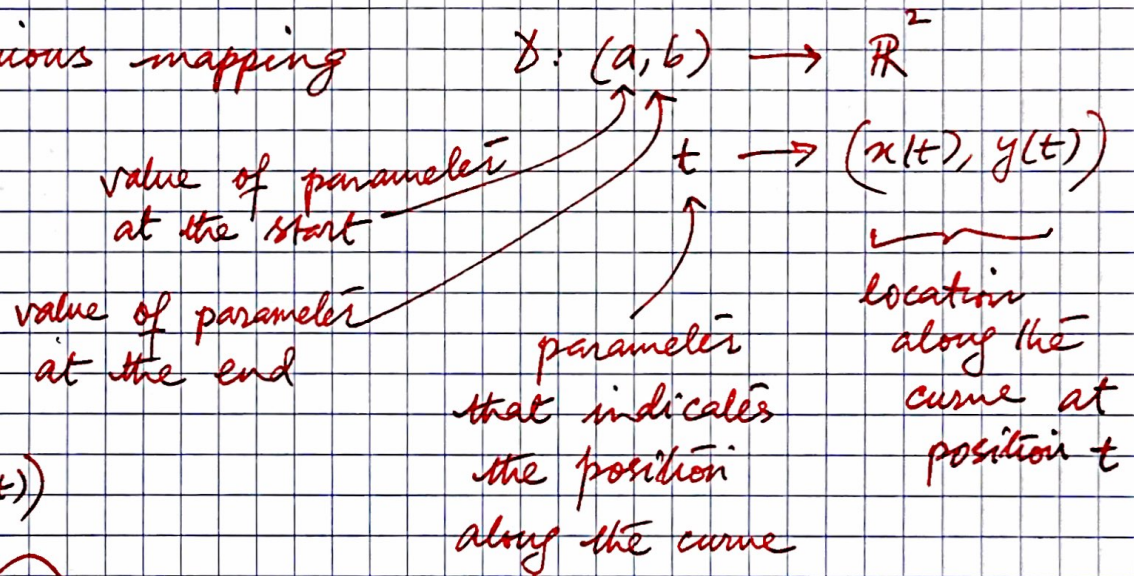 ious mapping γ: (a,b) → ℝ²
t → (x(t), y(t))
value of parameter
at the start
value of parameter
at the end
parameter
that indicates
the position
along the curve
location
along the
curve at
position t
t))